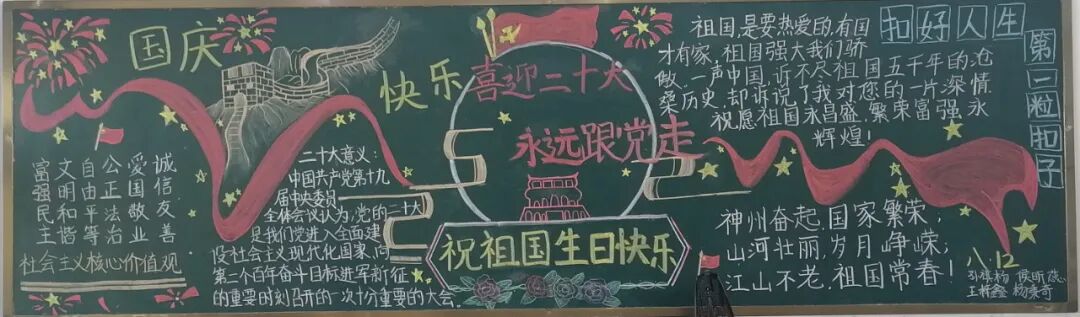 国庆
快乐
富文自公爱诚
强明由正国信
民和平法敬友
主谐等治业善
社会主义核心价值观
二十大意义:
中国共产党第十九
届中央委员
全体会议认为,党的二十大
是我们党进入全面建
设社会主义现代化国家,向
第二个百年奋斗目标进军新征
的重要时刻召开的一次十分重要的大会.
喜迎二十大
永远跟党走
祝祖国生日快乐
祖国,是要热爱的,有国
才有家,祖国强大我们骄
傲,一声中国,诉不尽祖国五千年的沧
桑历史,却诉说了我对您的一片深情
祝愿祖国永昌盛,繁荣富强永
辉煌!
扣好人生
第一粒扣子
神州奋起,国家繁荣;
山河壮丽,岁月峥嵘;
江山不老,祖国常春!
八.12